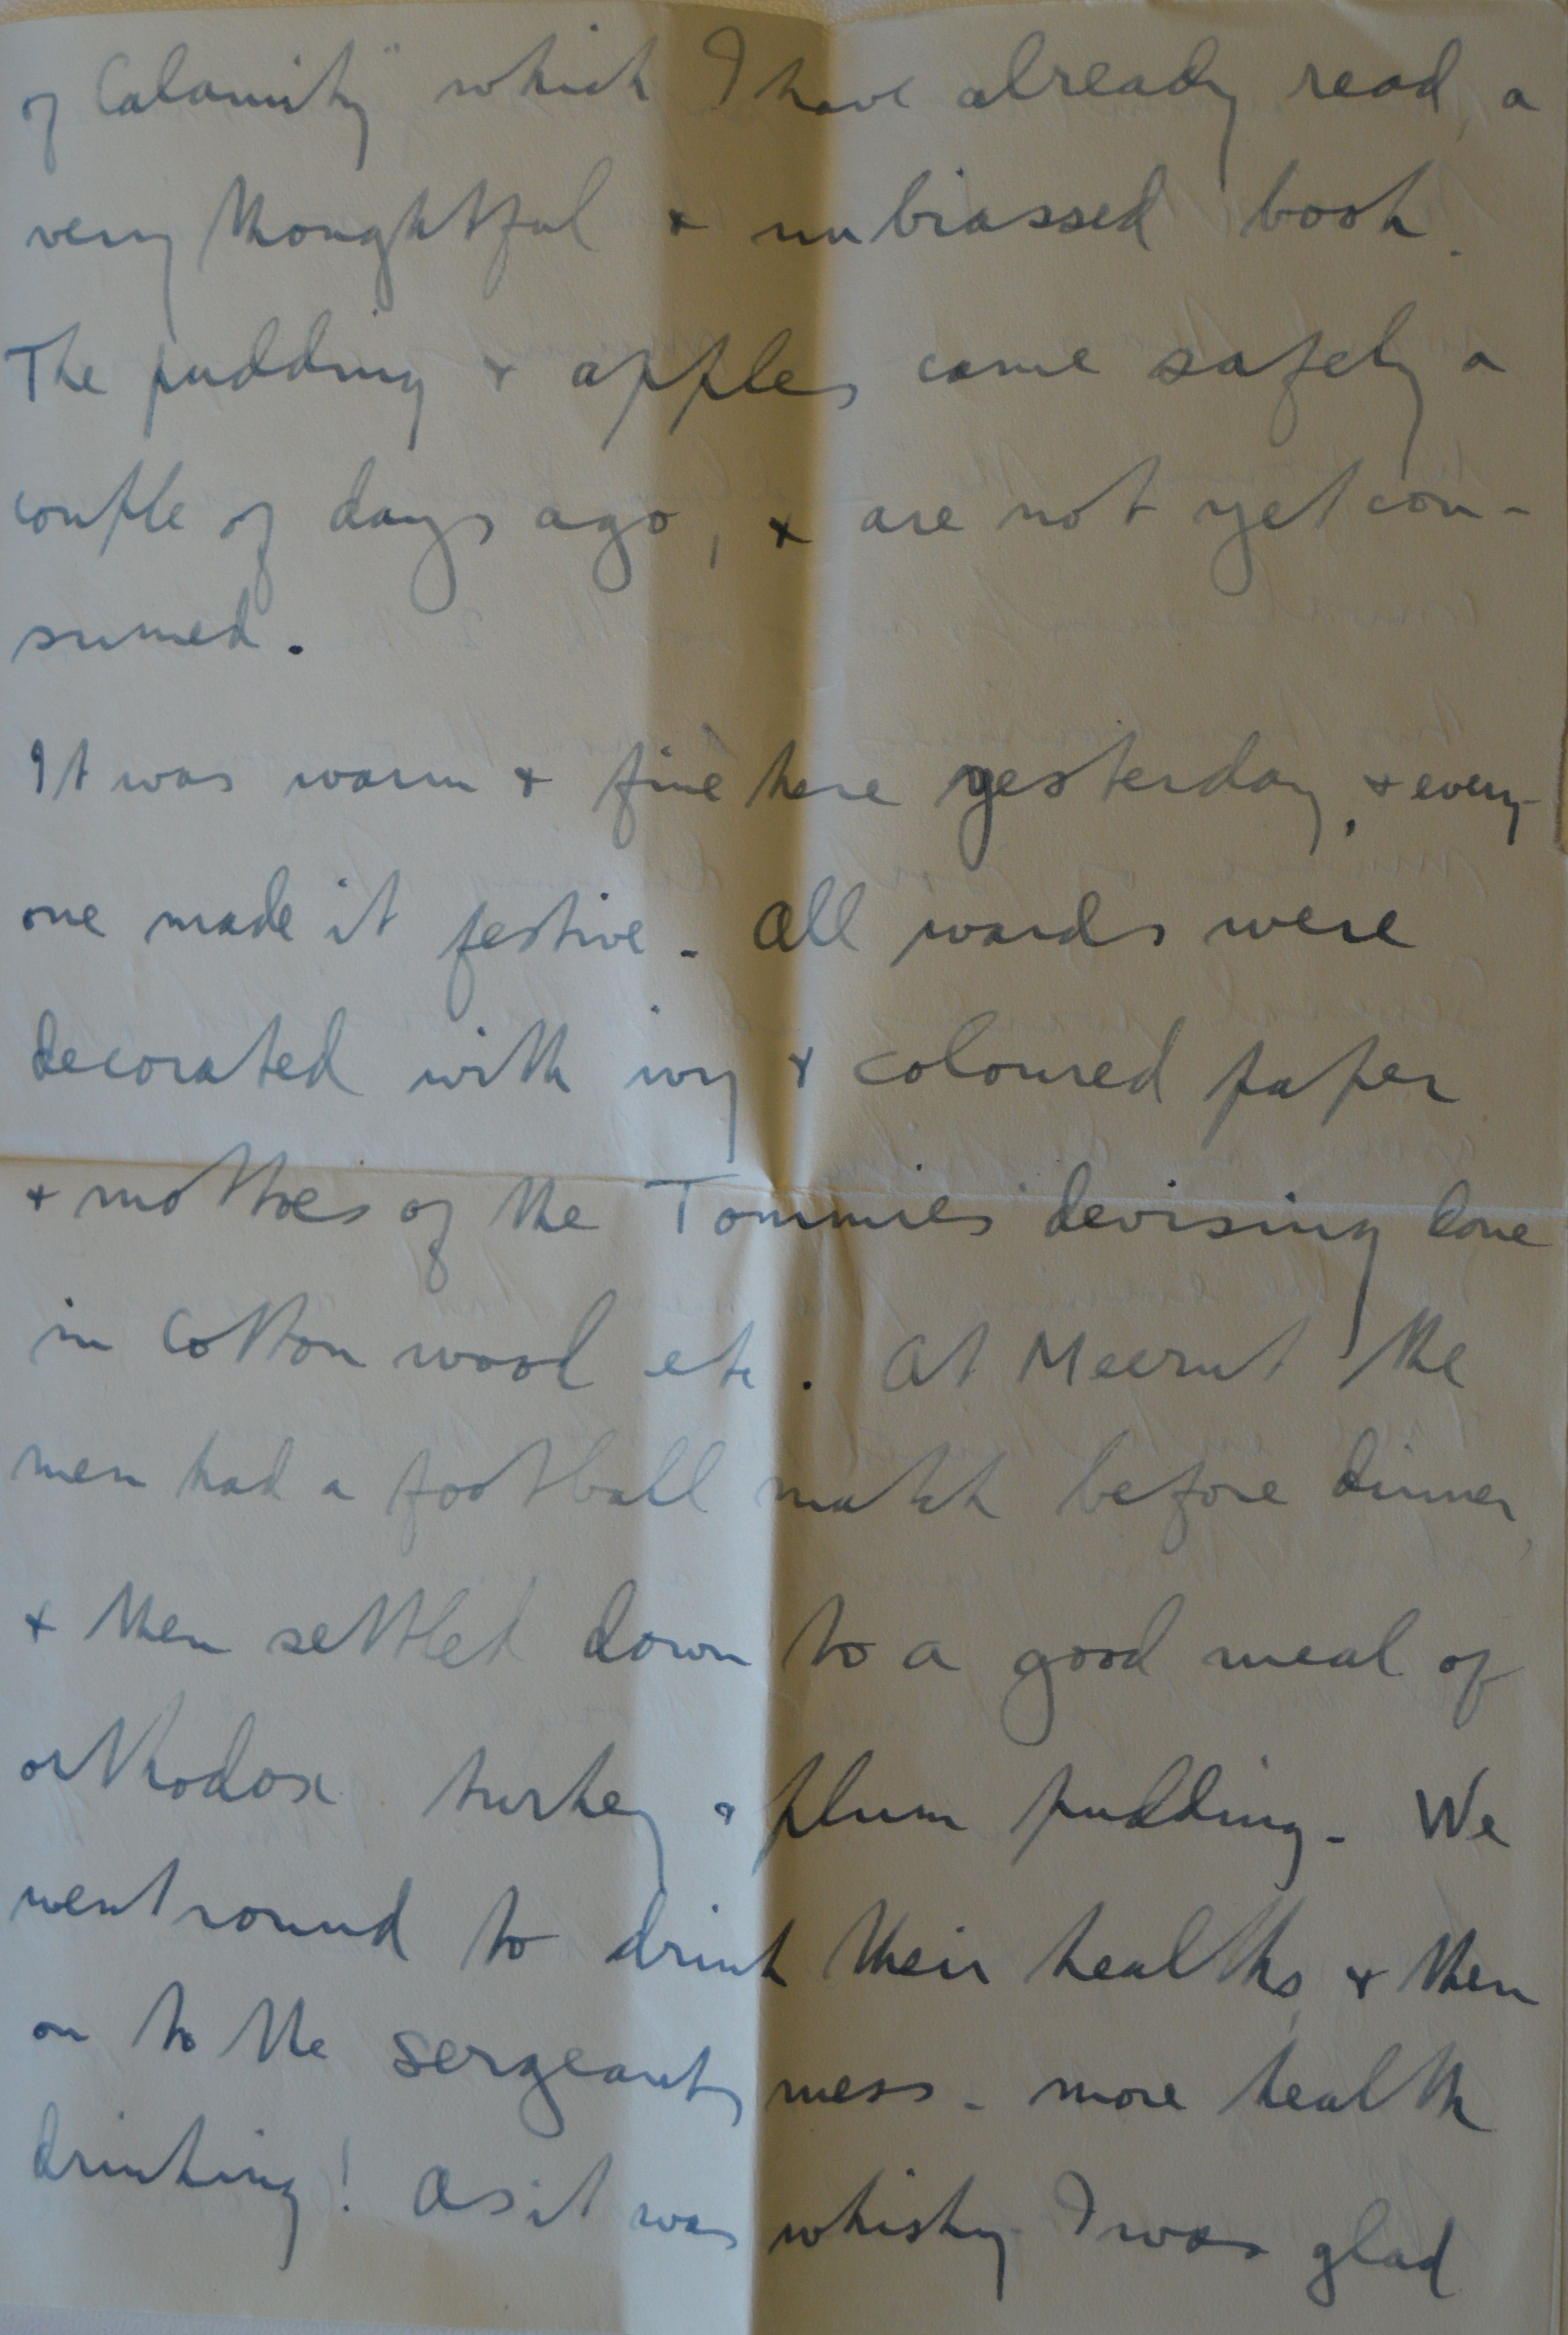 of Calamity" which I have already read, a
very thoughtful & unbiassed book.
The pudding & apples came safely a
couple of days ago, & are not yet con-
sumed.
It was warm & fine here yesterday, & every-
one made it festive. All wards were
decorated with ivy & coloured paper
& mottoes of the Tommies devising done
in cotton wool etc. At Meerut the
men had a football match before dinner,
& then settled down to a good meal of
orthodox turkey & plum pudding. We
went round to drink their healths, & then
on to the sergeants mess - more health
drinking! As it was whisky I was glad